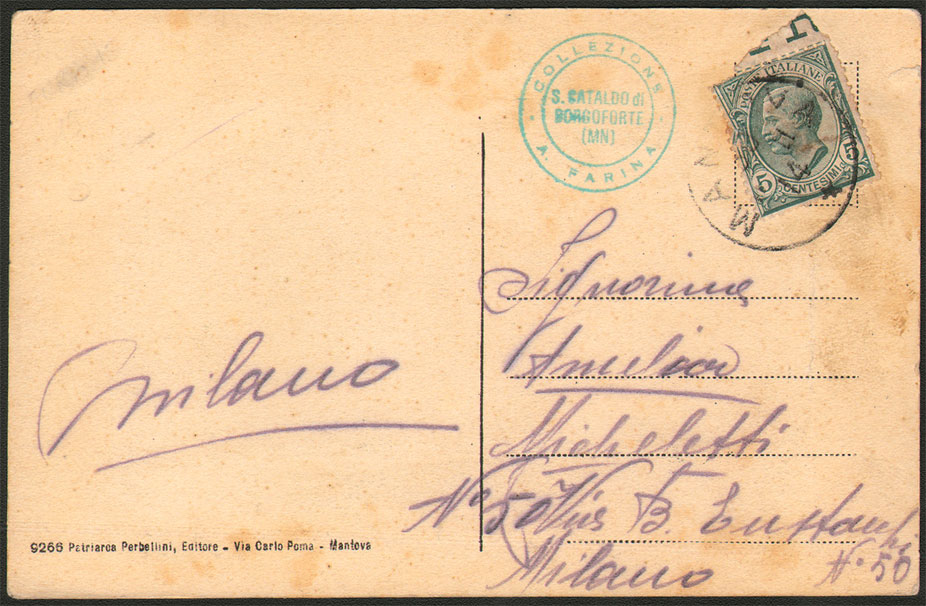 COLLEZIONE
S. CATALDO di
BORGOFORTE
(MN)
A. FARINA
POSTE ITALIANE
5
15
CENTESIMI
MAN
Signorina
Amelia
Micheletti
N° 50 Via B. Eustachi
Milano N° 50
Milano
9266 Patriarca Perbellini, Editore - Via Carlo Poma - Mantova